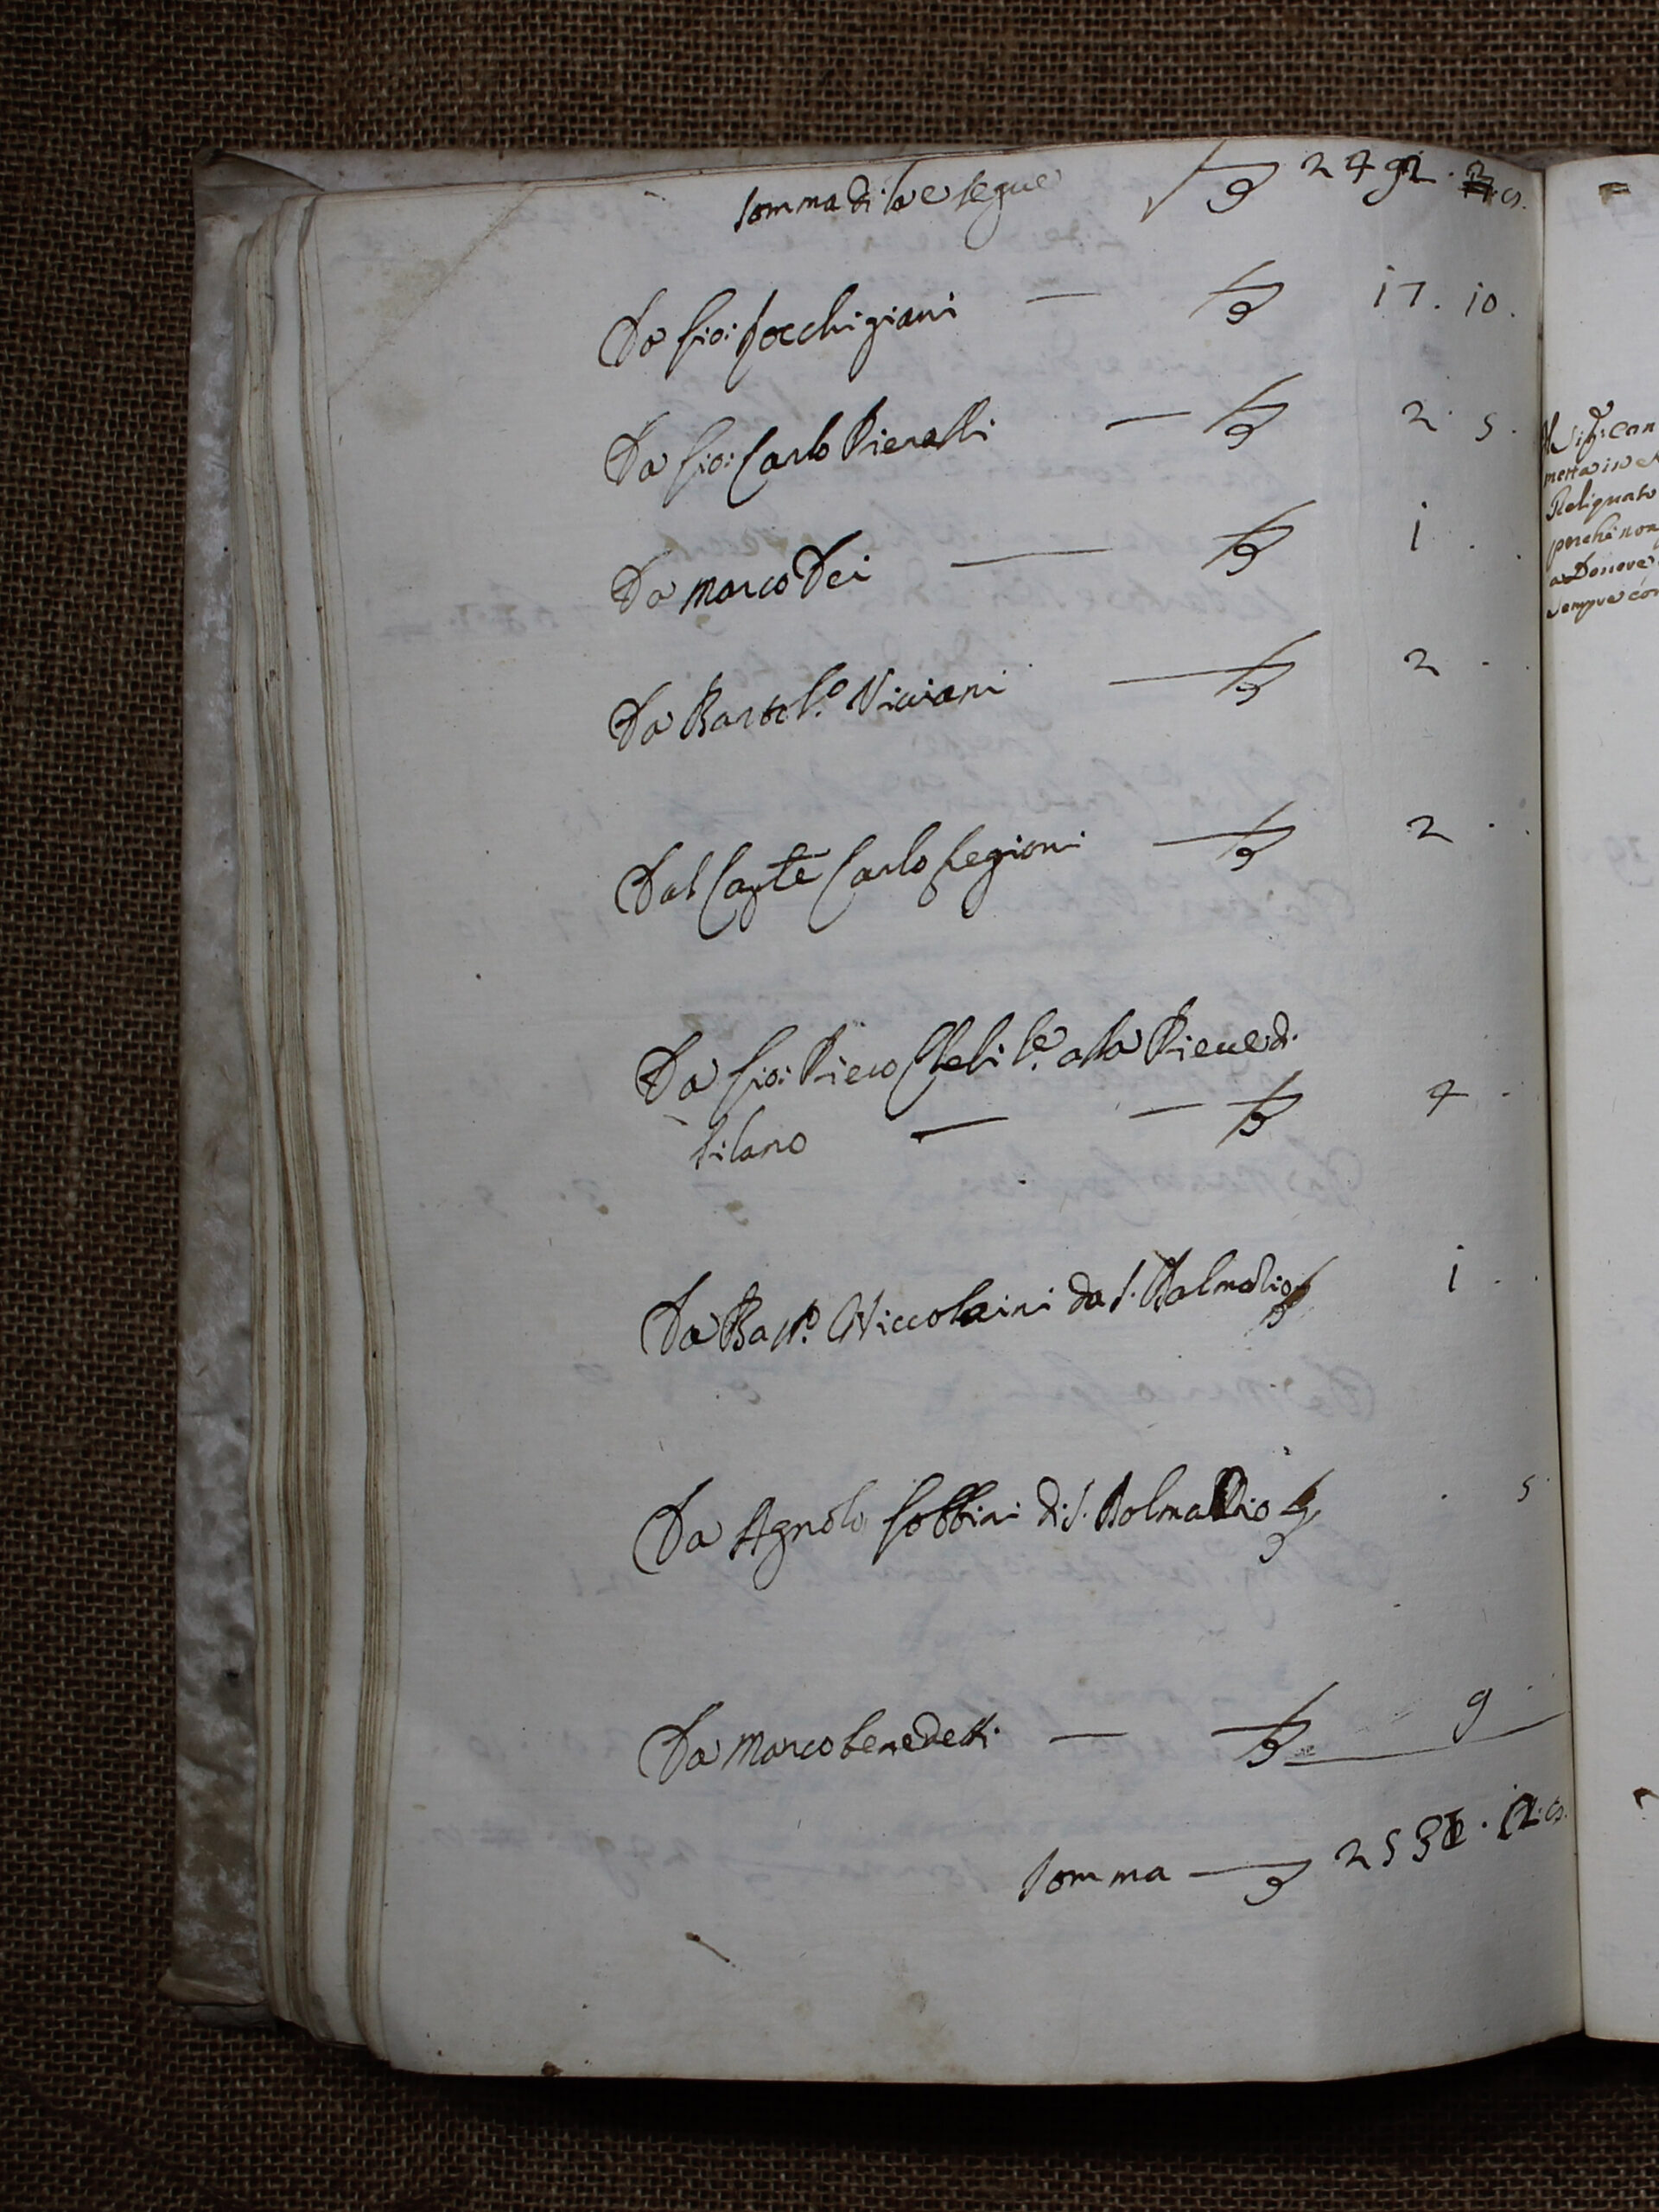 Somma di là e segue 2492.
Da Gio: Secchigiani — 17. 10.
Da Gio: Carlo Pieralli — 2. 5.
Da Marco Dei — 1 . .
Da Bartol.º Viviani — 2 . .
Dal Cap.te Carlo Segioni — 2 . .
Da Gio: Piero alla Pieve di
Silano — — 4 .
Da Batt.º Niccolaini da S. Dalmatio 1 . .
Da Agnolo Gobbini di S. Dalmatio . 5
Da Marco benedetti — 9 .
Somma — 2531. 12.
perche non
sempre con